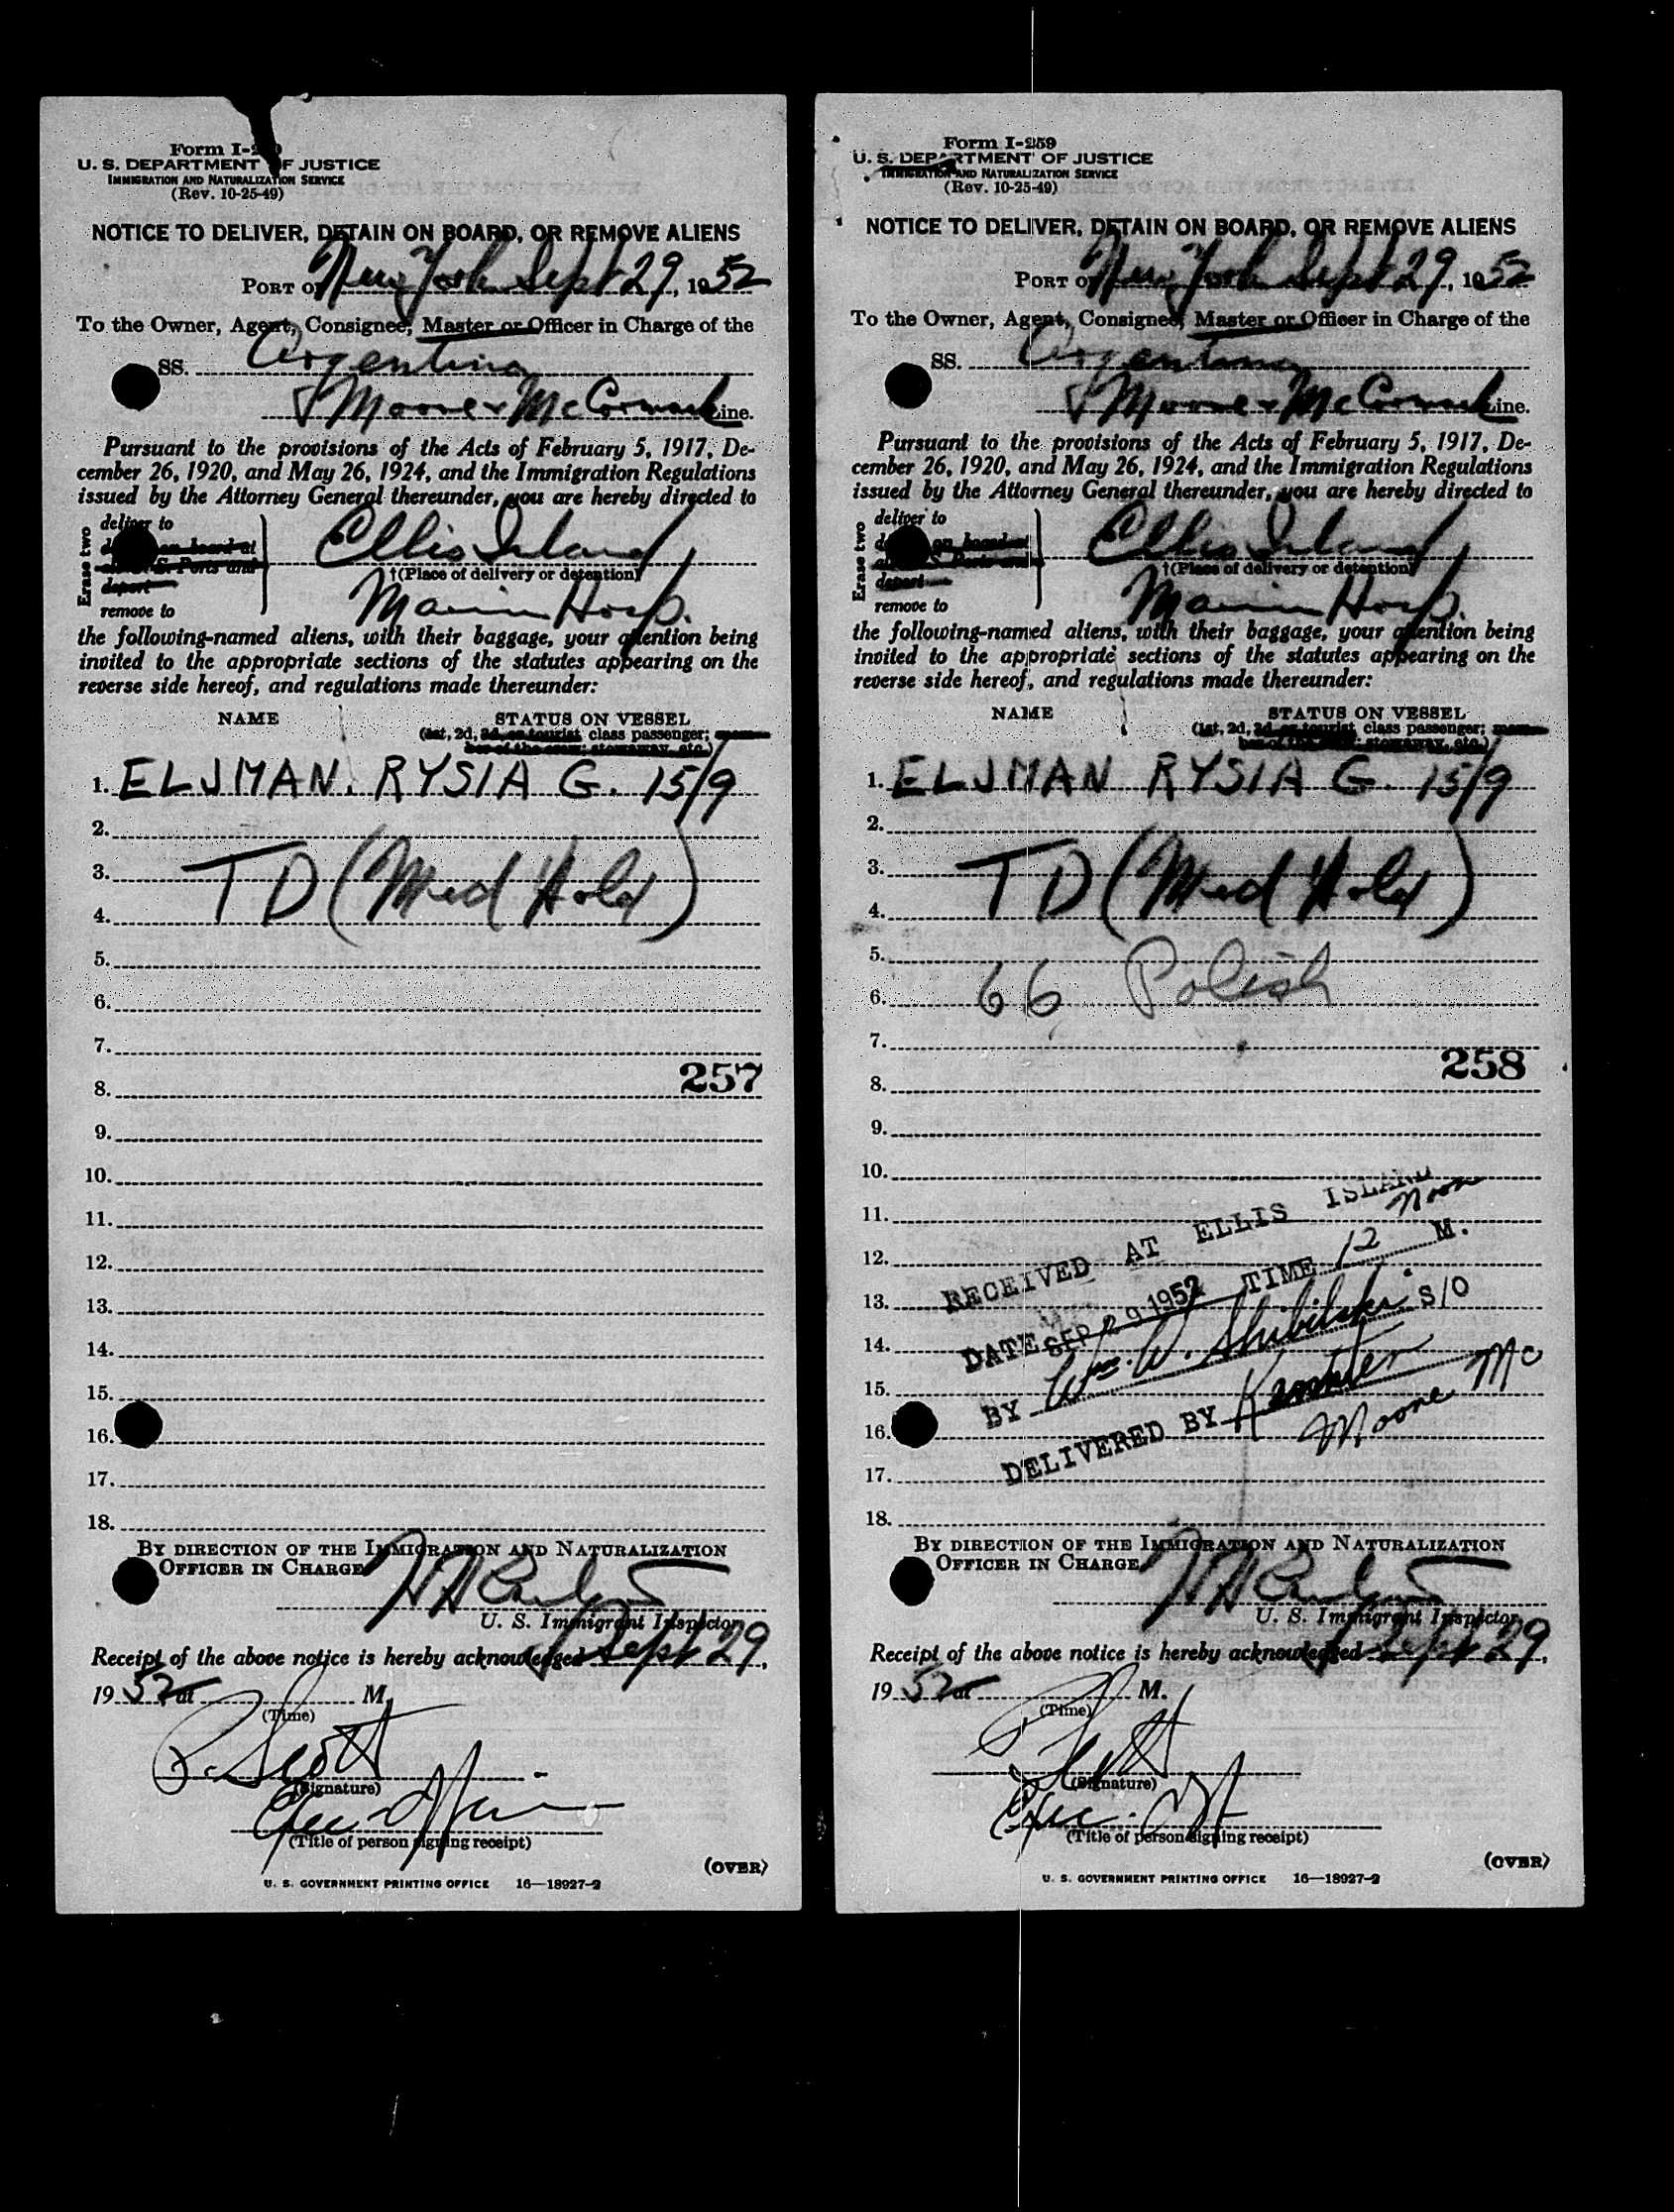 Form I-2
U. S. DEPARTMENT OF JUSTICE
IMMIGRATION AND NATURALIZATION SERVICE
(Rev. 10-25-49)
NOTICE TO DELIVER, DETAIN ON BOARD, OR REMOVE ALIENS
PORT OF New York Sept 29, 1952
To the Owner, Agent, Consignee, Master or Officer in Charge of the
SS. Argentina
Moore McCormack Line.
Pursuant to the provisions of the Acts of February 5, 1917, De-
cember 26, 1920, and May 26, 1924, and the Immigration Regulations
issued by the Attorney General thereunder, you are hereby directed to
Erase two
deliver to
on board at
U. S. Ports and
deport
remove to
Ellis Island
†(Place of delivery or detention)
Marin Hosp.
the following-named aliens, with their baggage, your attention being
invited to the appropriate sections of the statutes appearing on the
reverse side hereof, and regulations made thereunder:
NAME STATUS ON VESSEL
(1st, 2d, 3d, or tourist class passenger; mem-
ber of the crew; stowaway, etc.)
1. ELJMAN. RYSIA G. 15/9
2.
3. TD (Med Hold)
4.
5.
6.
7.
257
8.
9.
10.
11.
12.
13.
14.
15.
16.
17.
18.
BY DIRECTION OF THE IMMIGRATION AND NATURALIZATION
OFFICER IN CHARGE
U. S. Immigrant Inspector
Receipt of the above notice is hereby acknowledged Sept 29,
1952 at M.
(Time)
Scott
(Signature)
(Title of person signing receipt)
(OVER)
U. S. GOVERNMENT PRINTING OFFICE 16—18927-2
Form I-259
U. S. DEPARTMENT OF JUSTICE
IMMIGRATION AND NATURALIZATION SERVICE
(Rev. 10-25-49)
NOTICE TO DELIVER, DETAIN ON BOARD, OR REMOVE ALIENS
PORT OF New York Sept 29, 1952
To the Owner, Agent, Consignee, Master or Officer in Charge of the
SS. Argentina
Moore McCormack Line.
Pursuant to the provisions of the Acts of February 5, 1917, De-
cember 26, 1920, and May 26, 1924, and the Immigration Regulations
issued by the Attorney General thereunder, you are hereby directed to
Erase two
deliver to
on board at
S. Ports and
deport
remove to
Ellis Island
†(Place of delivery or detention)
Marin Hosp.
the following-named aliens, with their baggage, your attention being
invited to the appropriate sections of the statutes appearing on the
reverse side hereof, and regulations made thereunder:
NAME STATUS ON VESSEL
(1st, 2d, 3d, or tourist class passenger; mem-
ber of the crew; stowaway, etc.)
1. ELJMAN RYSIA G. 15/9
2.
3. TD (Med Hold)
4.
5.
6. 66 Polish
7.
258
8.
9.
10.
11.
12.
13.
14.
15.
16.
17.
18.
RECEIVED AT ELLIS ISLAND
DATE SEP 29 1952 TIME 12 Noon M.
BY Wm. W. Shibilski S/O
DELIVERED BY
Moore Mc
BY DIRECTION OF THE IMMIGRATION AND NATURALIZATION
OFFICER IN CHARGE
U. S. Immigrant Inspector
Receipt of the above notice is hereby acknowledged Sept 29,
1952 at M.
(Time)
Scott
(Signature)
(Title of person signing receipt)
(OVER)
U. S. GOVERNMENT PRINTING OFFICE 16—18927-2